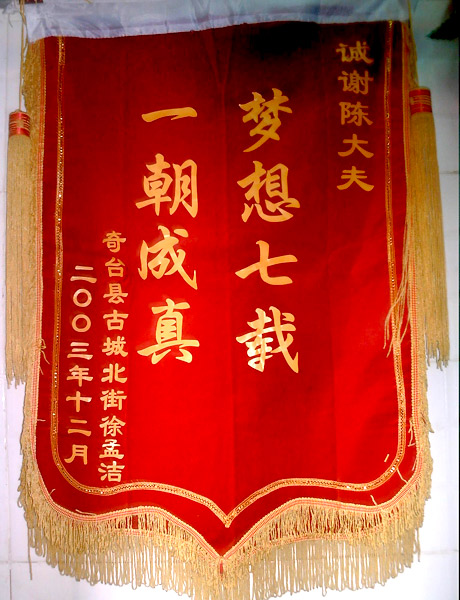 诚谢陈大夫
梦想七载
一朝成真
奇台县古城北街徐孟洁
二〇〇三年十二月